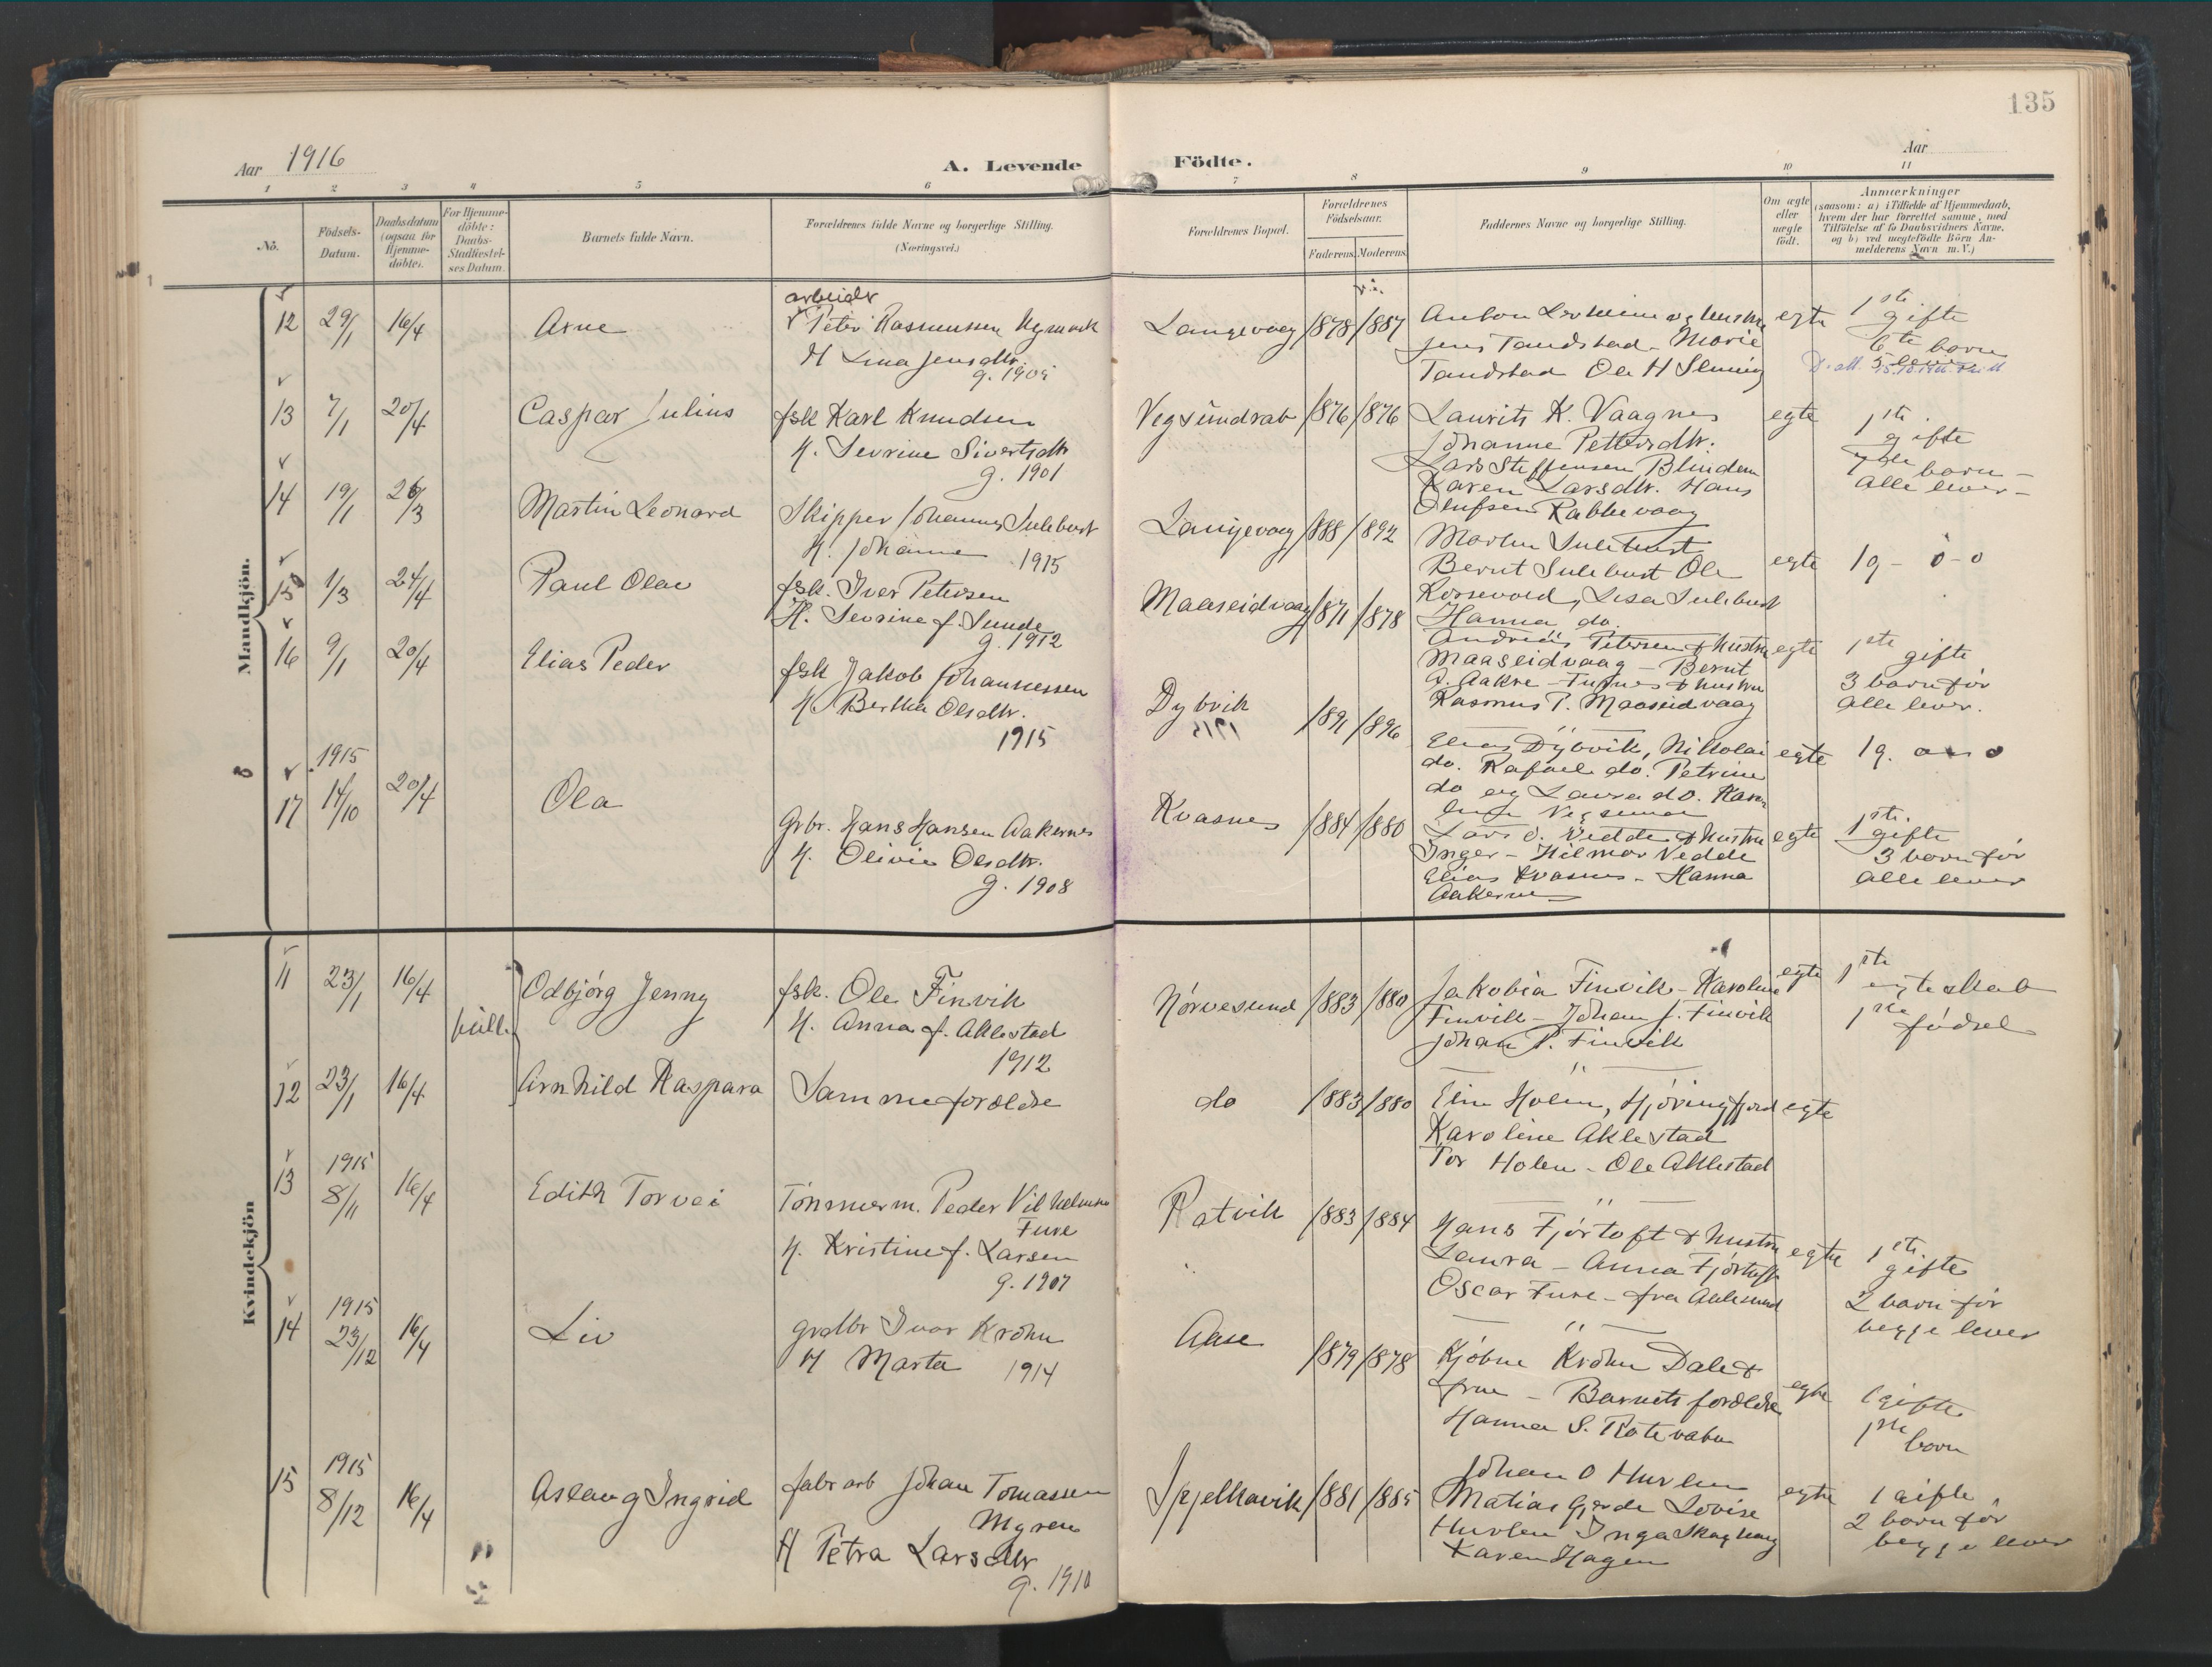 135
Aar 1916
A. Levende Födte.
Aar
1 2 3 4 5 6 7 8 9 10 11
No.
Födsels-Datum.
Daabsdatum (ogsaa for Hjemme-döbte).
For Hjemme-döbte: Daabs-Stadfæstel-ses Datum.
Barnets fulde Navn.
Forældrenes fulde Navne og borgerlige Stilling. (Næringsvei.)
Forældrenes Bopæl.
Forældrenes Födselsaar.
Faderens. Moderens.
Faddernes Navne og borgerlige Stilling.
Om ægte eller uægte födt.
Anmærkninger
(saasom: a) i Tilfælde af Hjemmedaab, hvem der har forrettet samme, med Tilföielse af to Daabsvidners Navne, og b) ved uægtefödte Börn Anmelderens Navn m.V.)
Mandkjön.
12 29/1 16/4 Arne
arbeider
Peter Rasmussen Nymark
H Lina Jensdtr.
g. 1905
Langevaag 1878 1887
Jens Tandstad - Marie
Tandstad Ole H
egte 1ste gifte
6te barn
13 7/1 20/4 Caspar Julius
fsk Karl Knudsen
H. Sevrine Sivertsdtr
g. 1901
Vegsundrab 1876 1876
Laurits K. Vaagnes
Johanne Pettersdtr.
Lars Steffensen Blindem
Karen Larsdtr. Hans
Olufsen Rabbevaag
egte 1ste gifte
7de barn -
alle lever -
14 19/1 26/3 Martin Leonard
Skipper Johannes Sulebust
H. Johanne 1915
Langevaag 1888 1892
Sulebust
Bernt Sulebust Ole
Rossevold, Lisa Sulebust
Hanna do.
egte 1g - o - o
15 1/3 24/4 Paul Olav
fsk. Iver Petersen
H. Sevrine f. Sunde
g. 1912
Maaseidvaag 1871 1878
Andreas Petersen & hustru
Maaseidvaag - Bernt
Rasmus P. Maaseidvaag
egte 1ste gifte
3 barn før
alle lever.
16 9/1 20/4 Elias Peder
fsk Jakob Johannessen
H. Bertha Olsdtr.
1915
Dybvik 1891 1896
Elias Dybvik, Nikolai
do. Rafael do. Petrine
do og Laura do.
egte 1g. o
17 1915 14/10 20/4 Ola
Grbr. Hans Hansen Aakernes
H. Olivie Olsdtr.
g. 1908
Kvasnes 1884 1880
Lars O. Vedde & hustru
Inger - Hilmar Vedde
Elias Kvasnes - Hanna
egte 1ste gifte
3 barn før
alle lever
Kvindekjön
11 23/1 16/4 Odbjörg Jenny
fsk. Ole Finvik
H. Anna f. Aklestad
1912
Nørvesund 1883 1880
Jakobia Finvik - Karoline
Finvik - Johan J. Finvik
Johan P. Finvik
egte 1ste egteskab
1ste fødsel
12 23/1 16/4 Arnhild Kaspara
Samme forældre
do 1883 1880
Holen, Hjøringfjord
Karoline Aklestad
Tor Holen - Ole Aklestad
egte
13 1915 8/11 16/4 Edith Torvei
Tømmerm. Peder Vilhelmsen
Fure
H. Kristine f. Larsen
g. 1907
Ratvik 1883 1884
Hans Fjørtoft & hustru
Laura - Anna Fjørtoft
Oscar Fure - fra Aalesund
egte 1ste gifte
2 barn før
begge lever
14 1915 23/12 16/4 Liv
grdbr Ivar Krohn
H Marta 1914
Aase 1879 1878
Krohn Dale &
frue - Barnets forældre
Hanna S. Rotevatn
egte 1 gifte
1ste barn
15 1915 8/12 16/4 Aslaug Ingrid
fabr arb Johan Tomassen
Myren
H Petra Larsdtr
g. 1910
Spjelkavik 1881 1885
Johan O Hurlen
Matias Gjerde Lovise
Hurlen Inga
Karen Hagen
egte 1 gifte
2 barn før
begge lever